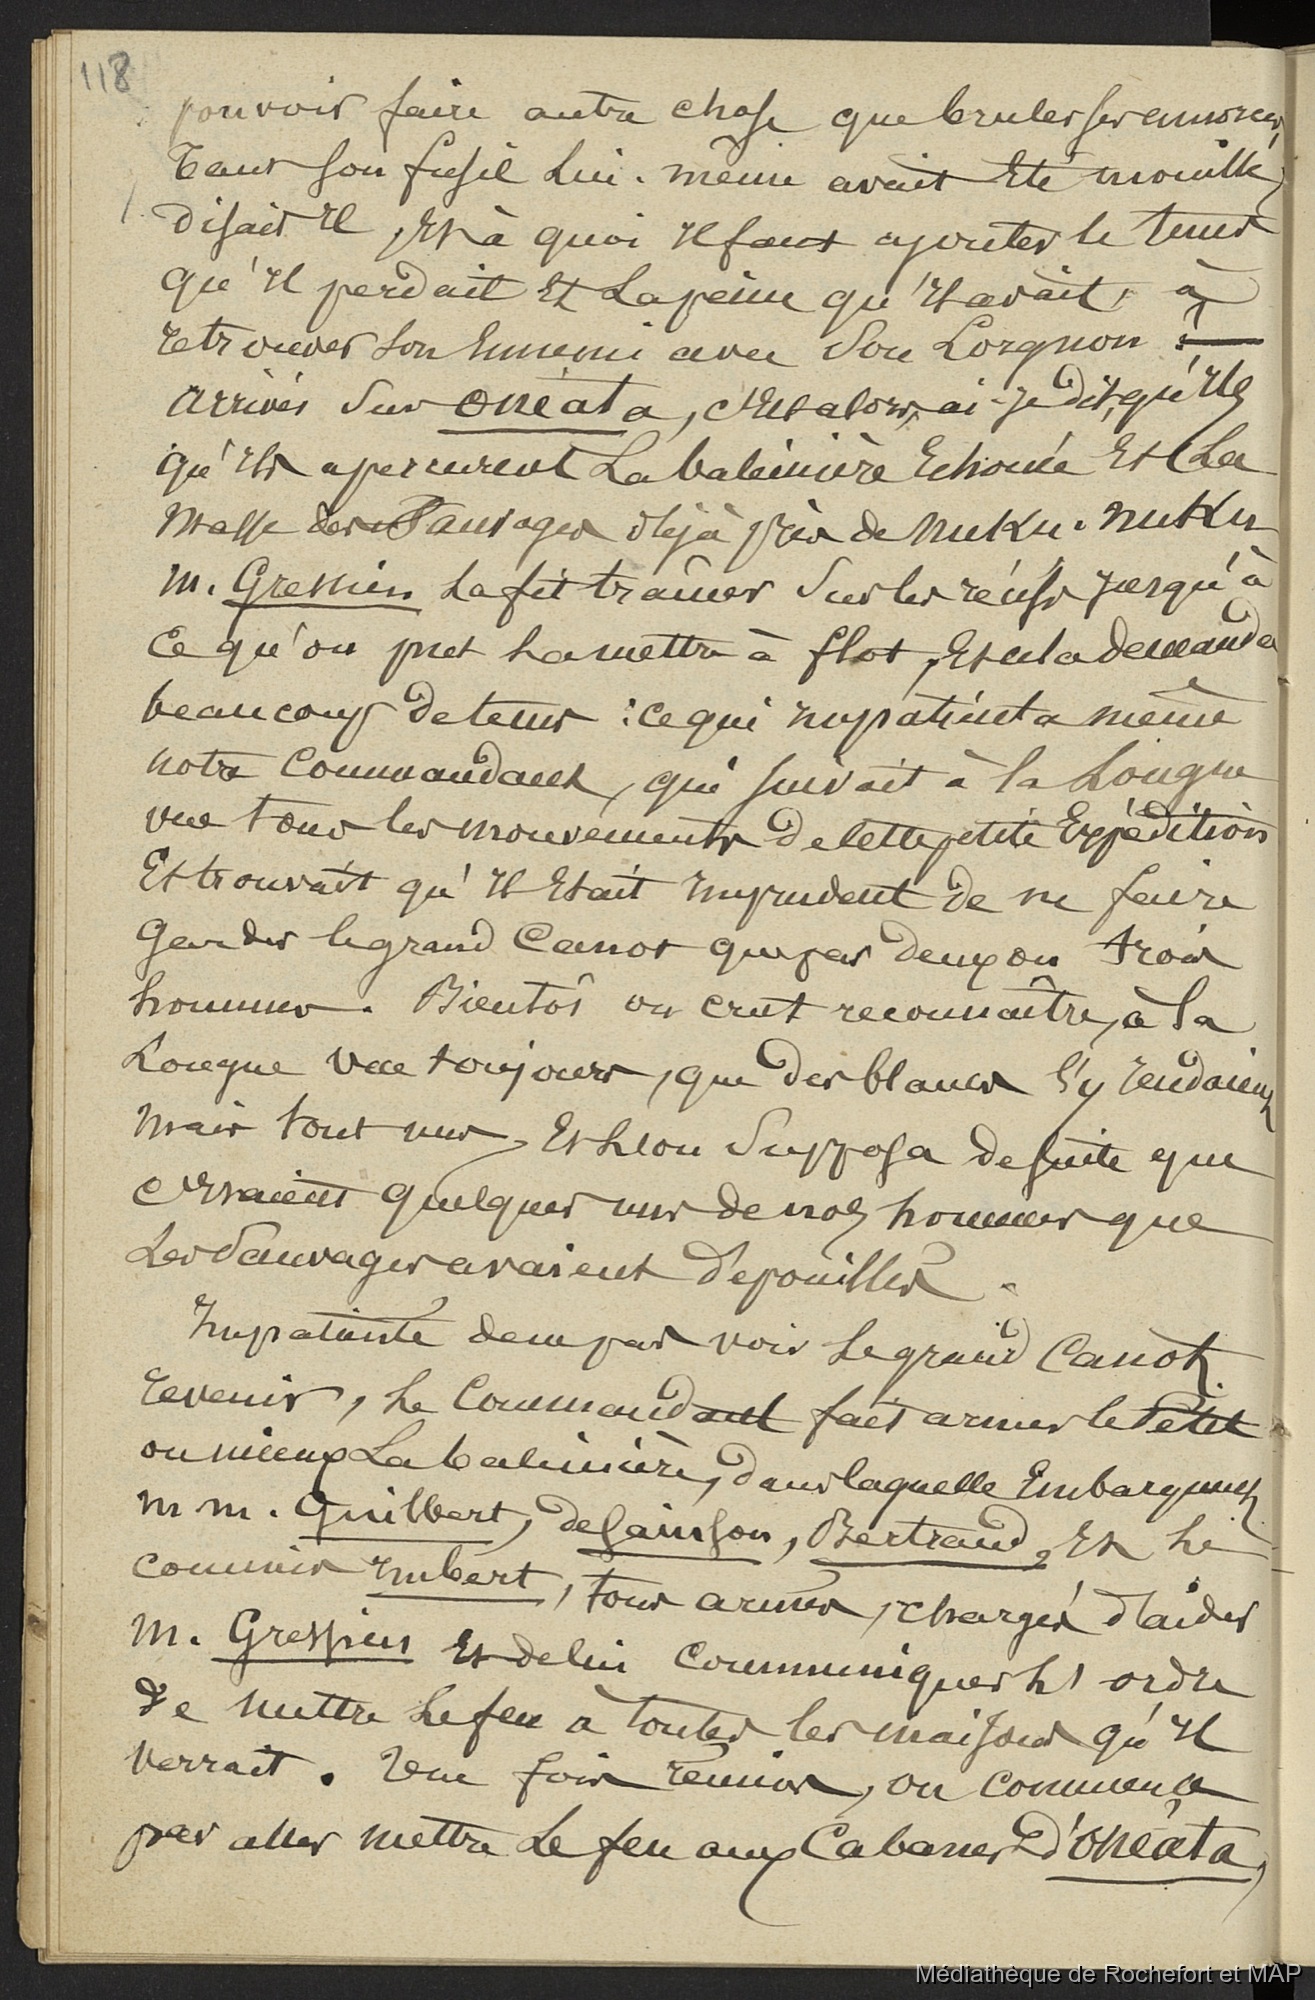 118
pouvoir faire autre chose que bruler ses amorces,
tant son fusil lui-même avait Eté mouillé,
disait Il, Et à quoi Il faut ajouter le tems
qu'Il perdait Et La peine qu'Il avait, à
retrouver son Ennemi avec son Lorgnon !—
arrivés sur Onéata, c'Est alors, ai-je dit, qu'Ils
qu'Ils aperçurent La baleinière Echouée Et La
Masse des Sauvages déjà près de Nuku-nuku
M. Gressien La fit traîner sur les récifs jusqu'à
ce qu'on put La mettre à flot, Et cela demanda
beaucoup de tems : ce qui Impatienta même
notre Commandant, qui suivait à la Longue
vue tous les mouvements de cette petite Expédition
Et trouvait qu'Il Etait Imprudent de ne faire
garder le grand Canot que par deux ou trois
hommes. Bientôt on crut reconnaître, à la
Longue vue toujours, que des blancs s'y rendaient
Mais tout nus, Et L'on supposa de suite que
c'Etaient quelques uns de nos hommes que
Les Sauvages avaient dépouillés.
Impatienté de ne pas voir Le grand Canot
revenir, Le Commandant fait armer le Petit
ou mieux La baleinière, dans laquelle Embarquent
M M. Guilbert, de Sainson, Bertrand, Et Le
commis Imbert, tous armés, chargés d'aider
M. Gressien Et de lui communiquer L'ordre
de mettre Le feu à toutes les maisons qu'Il
verrait. Une fois réunis, on commence
par aller mettre Le feu aux Cabanes d'Onéata,
Médiathèque de Rochefort et MAP